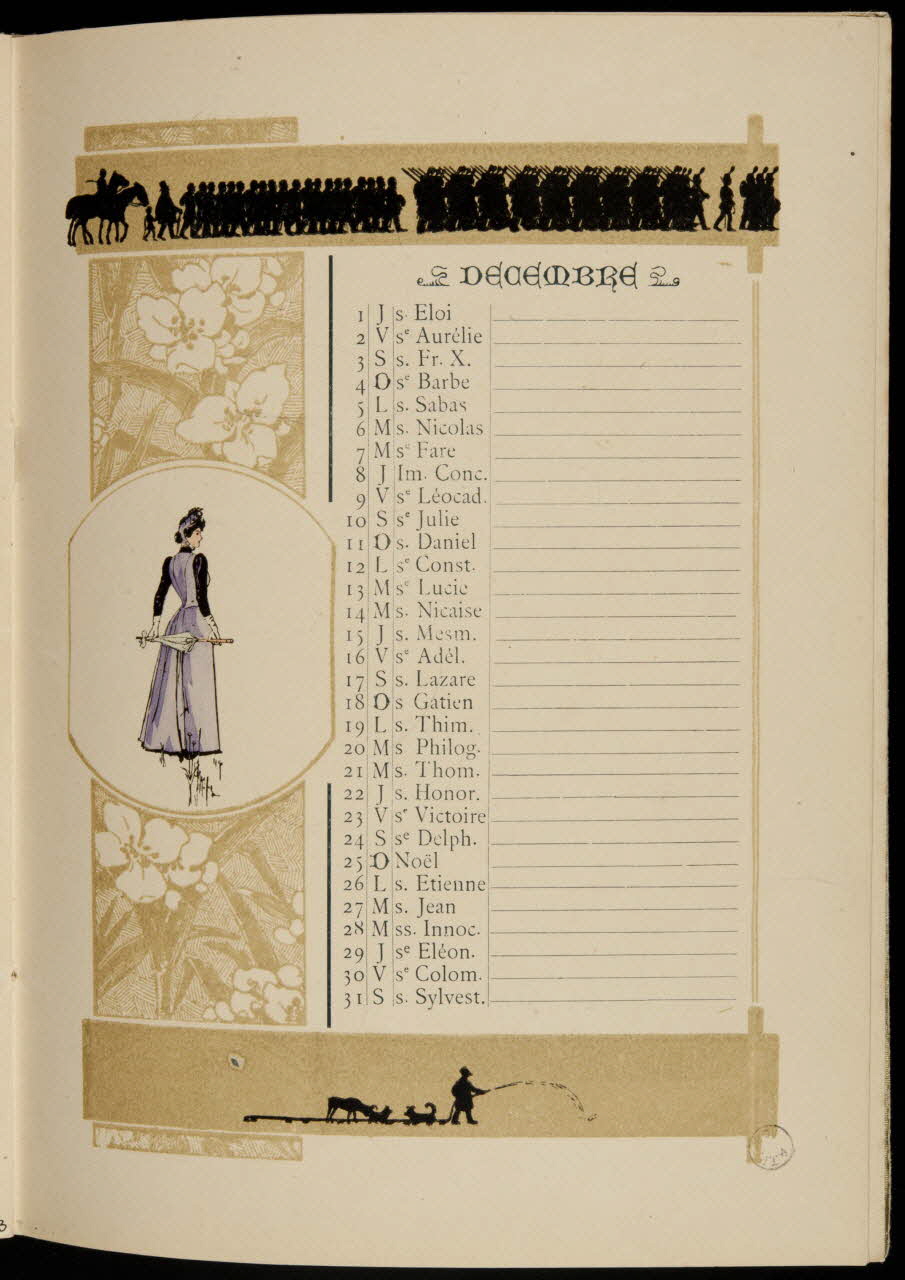 DECEMBRE
1 J s. Eloi
2 V sᵉ Aurélie
3 S s. Fr. X.
4 D sᵉ Barbe
5 L s. Sabas
6 M s. Nicolas
7 M sᵉ Fare
8 J Im. Conc.
9 V sᵉ Léocad.
10 S sᵉ Julie
11 D s. Daniel
12 L sᵉ Const.
13 M sᵉ Lucie
14 M s. Nicaise
15 J s. Mesm.
16 V sᵉ Adél.
17 S s. Lazare
18 D s Gatien
19 L s. Thim.
20 M s Philog.
21 M s. Thom.
22 J s. Honor.
23 V sᵉ Victoire
24 S sᵉ Delph.
25 D Noël
26 L s. Etienne
27 M s. Jean
28 M ss. Innoc.
29 J sᵉ Eléon.
30 V sᵉ Colom.
31 S s. Sylvest.